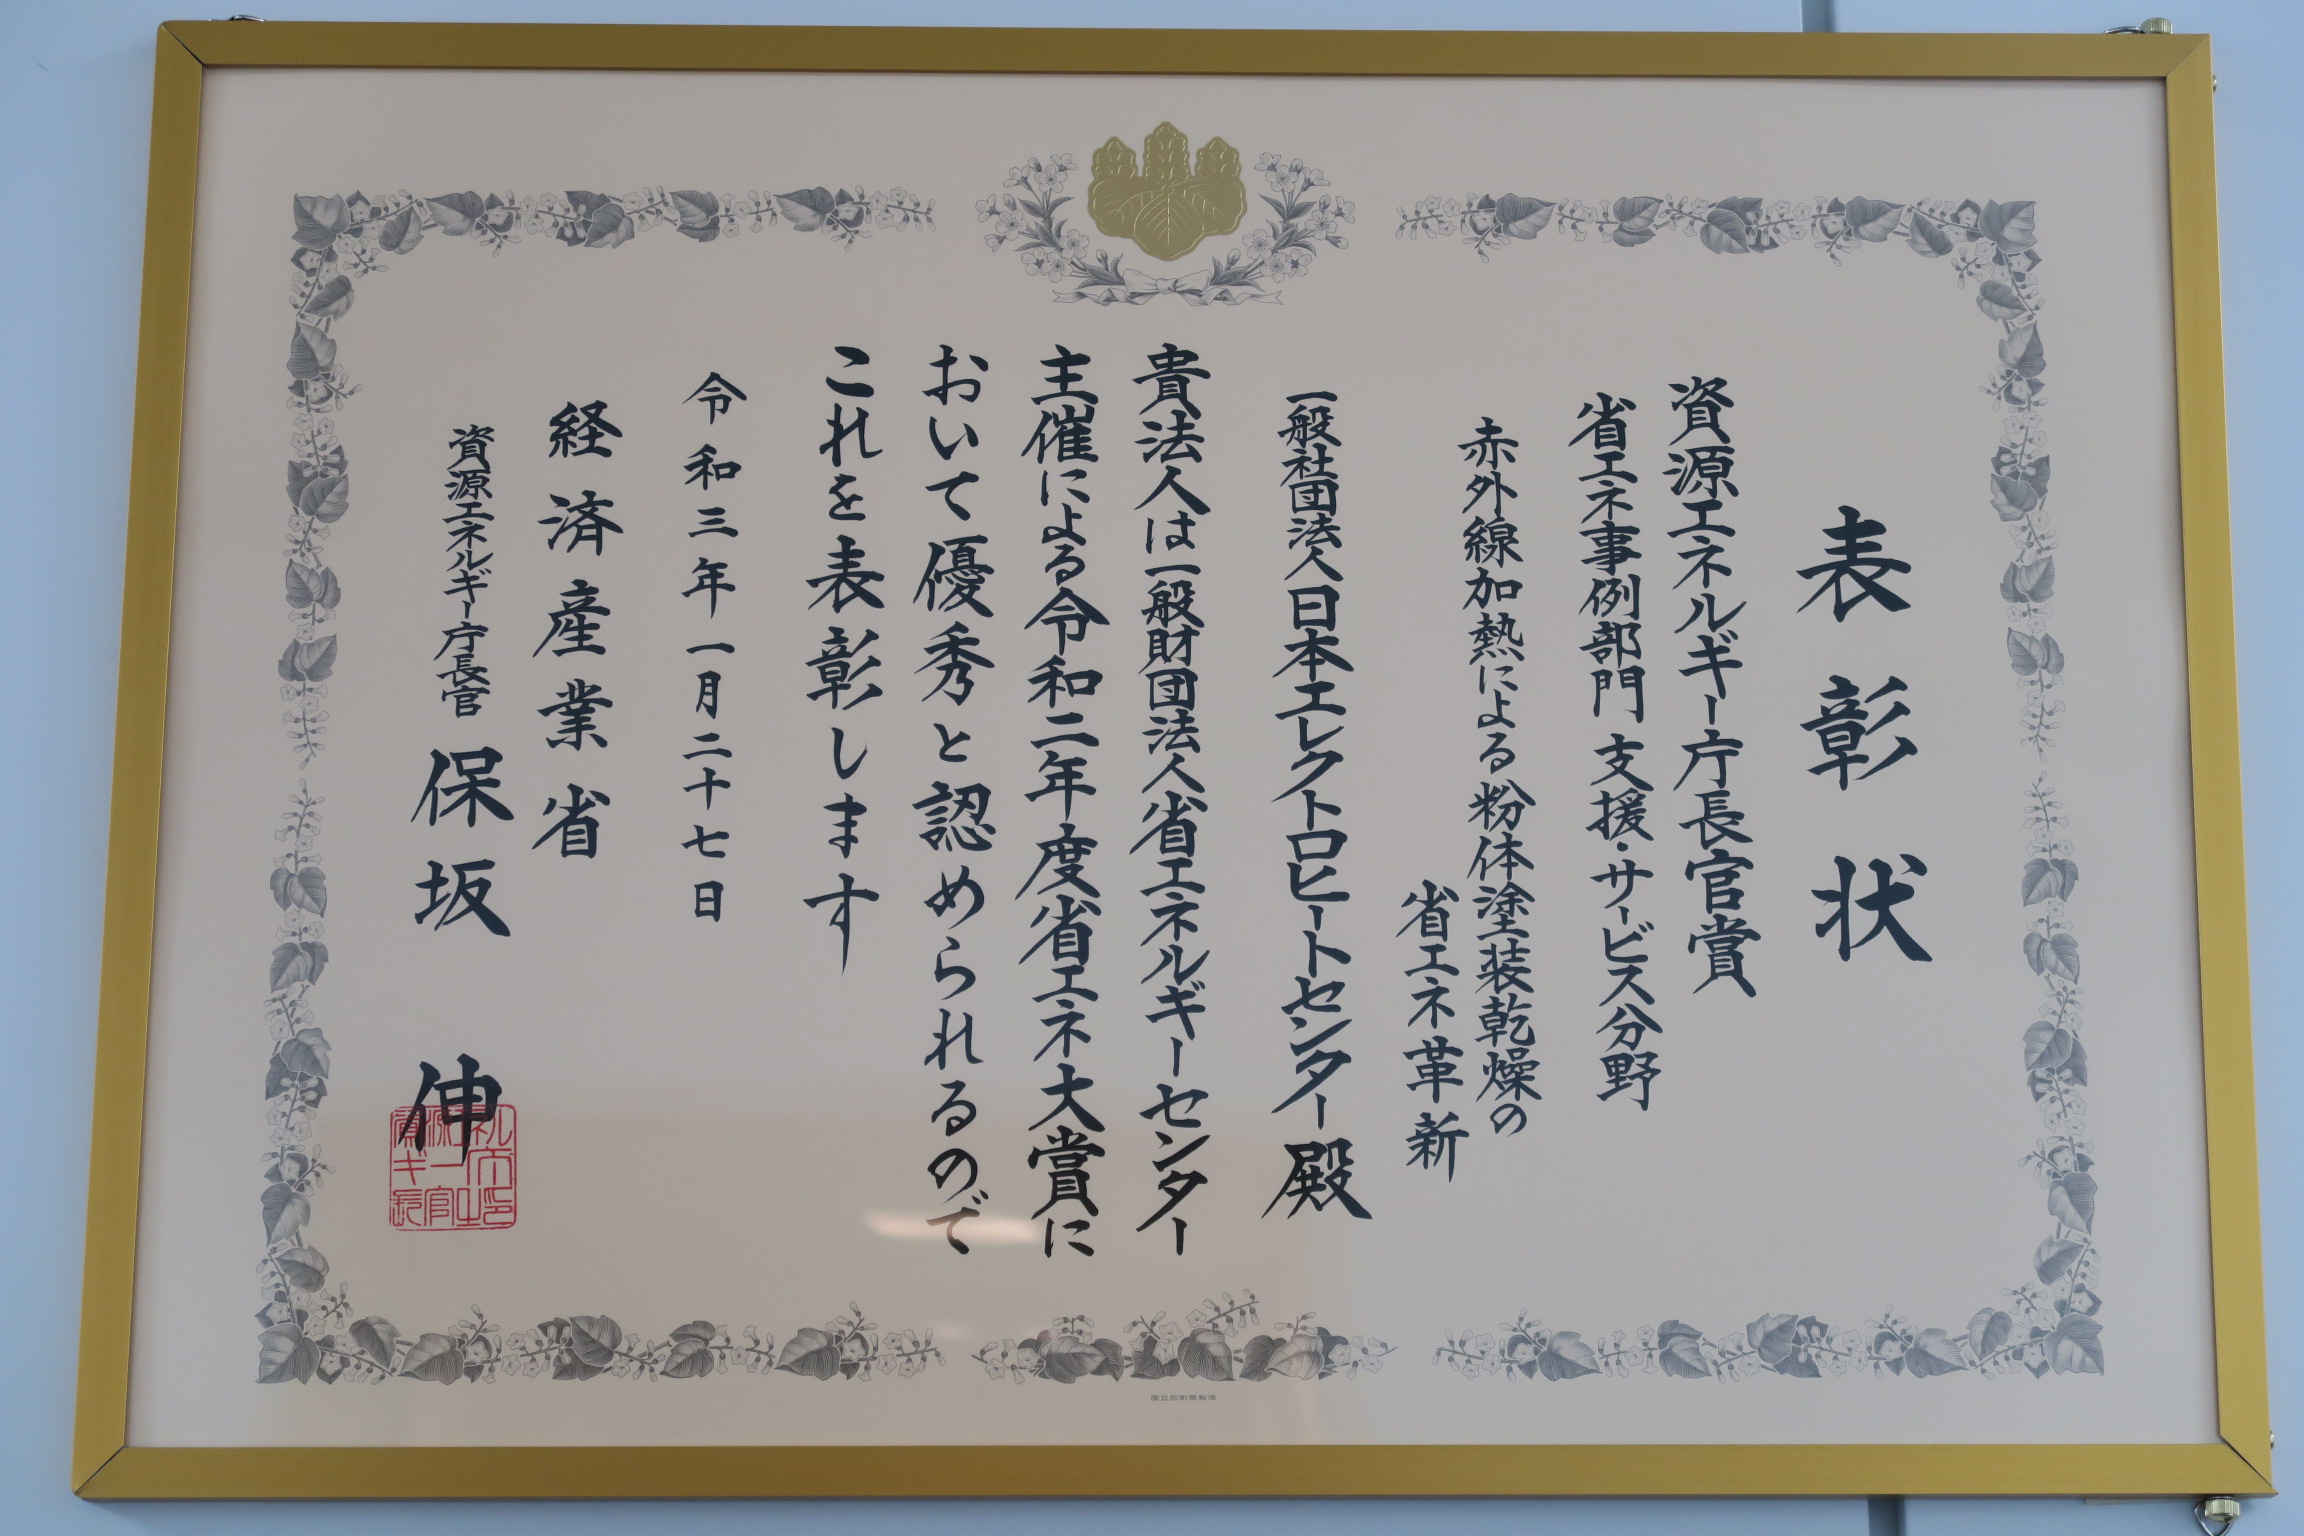 表彰状
資源エネルギー庁長官賞
省エネ事例部門 支援・サービス分野
赤外線加熱による粉体塗装乾燥の
省エネ革新
一般社団法人日本エレクトロヒートセンター殿
貴法人は一般財団法人省エネルギーセンター
主催による令和二年度省エネ大賞に
おいて優秀と認められるので
これを表彰します
令和三年一月二十七日
経済産業省
資源エネルギー庁長官 保坂 伸